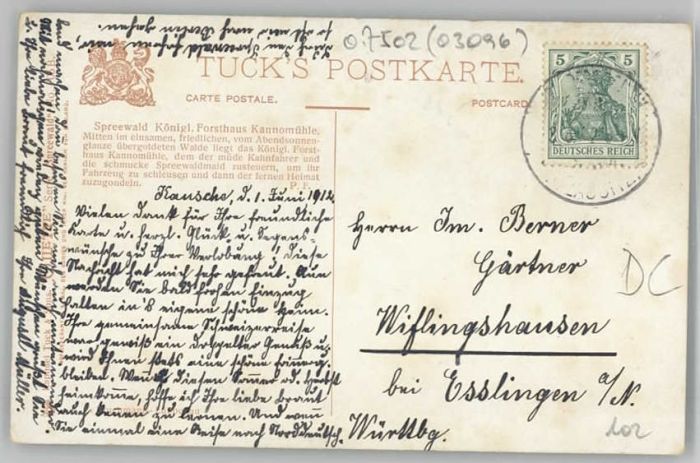 0.7502 (03096)
TUCK'S POSTKARTE.
CARTE POSTALE.
POSTCARD
5 5
DEUTSCHES REICH
Spreewald Königl. Forsthaus Kannomühle.
Mitten im einsamen, friedlichen, vom Abendsonnen-
glanze übergoldeten Walde liegt das Königl. Forst-
haus Kannomühle, dem der müde Kahnfahrer und
die schmucke Spreewaldmaid zusteuern, um ihr
Fahrzeug zu schleusen und dann der fernen Heimat
zuzugondeln.
P. F.
Kausche, d. 1. Juni 1912.
Vielen Dank für Ihre freundliche
Karte u. herzl. Glück u. Segens-
wünsche zu Ihrer Verlobung! Diese
Nachricht hat mich sehr gefreut. Nun
werden Sie bald frohen Einzug
halten in's eigene schöne Heim.
Ihre gemeinsame Schweizerreise
war gewiß ein doppelter Genuß u.
wird Ihnen stets eine schöne Erinnrg.
bleiben. Wenn ich diesen Sommer od. Herbst
heimkomme, hoffe ich Ihre liebe Braut
auch kennen zu lernen. Und wenn
Sie einmal eine Reise nach Norddeutsch-
land machen,
u. Ihre liebe Braut freundlichst Ihre
Müller.
so nah
Herrn Im. Berner
Gärtner
Wiflingshausen
bei Esslingen a/N.
Württbg.
DC
102